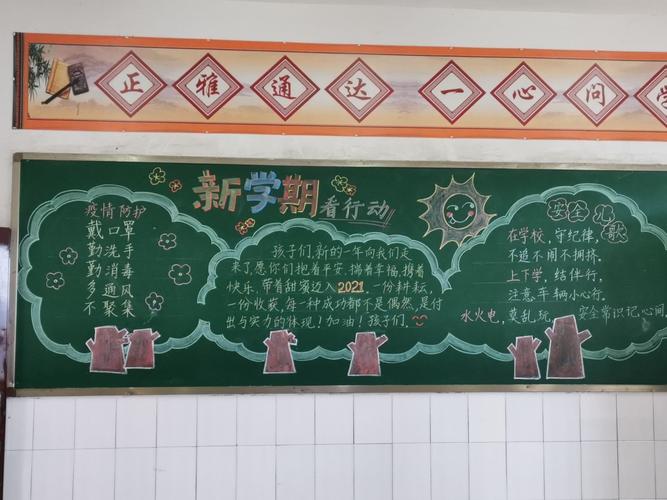 正雅通达 一心问学
新学期
看行动
疫情防护
戴口罩
勤洗手
勤消毒
多通风
不聚集
孩子们,新的一年向我们走
来了,愿你们抱着平安,揣着幸福,携着
快乐,带着甜蜜迈入2021。一份耕耘,
一份收获,每一种成功都不是偶然,是付
出与实力的体现!加油!孩子们。
安全儿歌
在学校,守纪律,
不追不闹不拥挤.
上下学,结伴行,
注意车辆小心行.
水火电,莫乱玩,安全常识记心间.